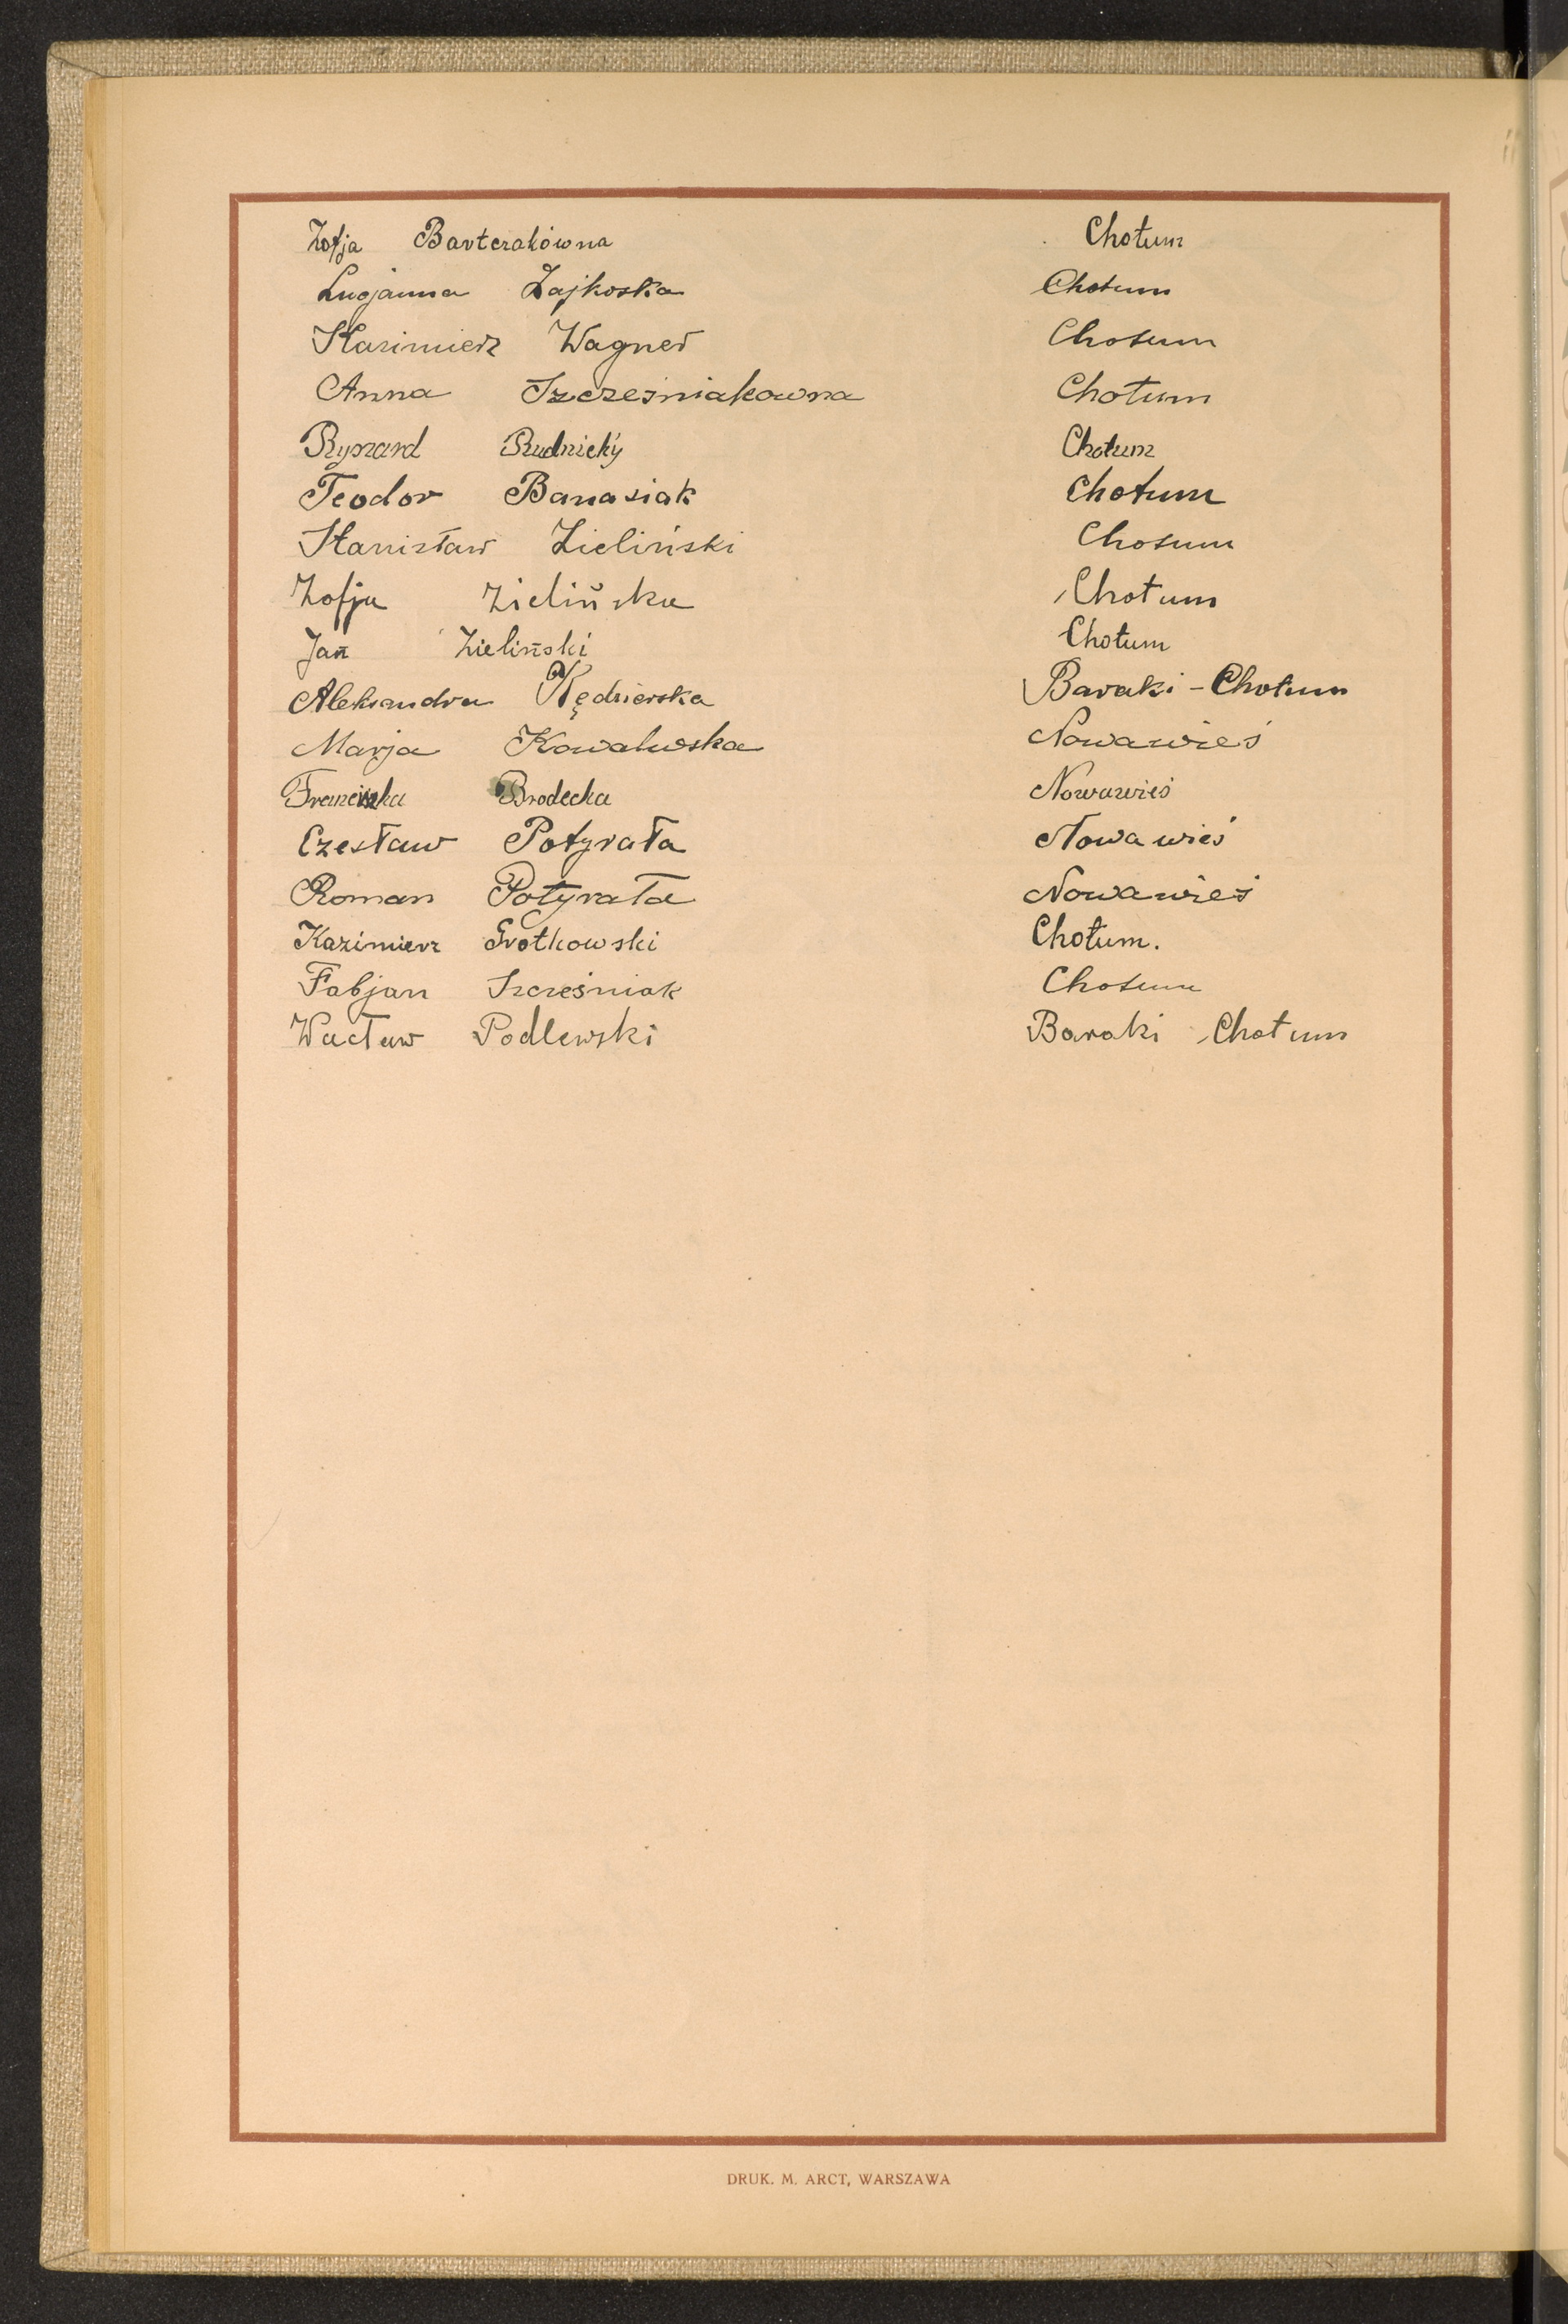 Zofja Barterakówna Chotum
Lucjanna Zajkoska Chotum
Kazimierz Wagner Chotum
Anna Szcześniakowna Chotum
Ryszard Rudnicky Chotum
Teodor Banasiak Chotum
Stanisław Zieliński Chotum
Zofja Zielińska Chotum
Jan Zieliński Chotum
Aleksandra Kędzierska Baraki - Chotum
Marja Kowalwska Nowawieś
Franciszka Brodecka Nowawieś
Czesław Potyrała Nowa wieś
Roman Potyrała Nowawieś
Kazimierz Grotkowski Chotum.
Fabjan Szcześniak Chotum
Wacław Podlewski Baraki Chotum
DRUK. M. ARCT, WARSZAWA